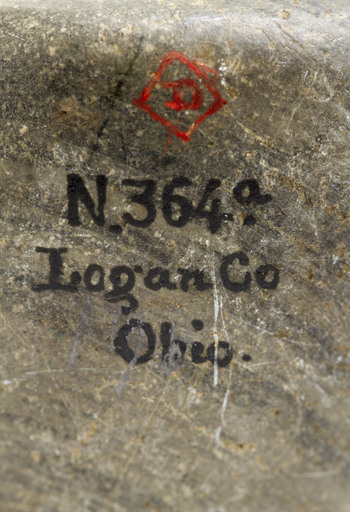 D
N.364a
Logan Co
Ohio.